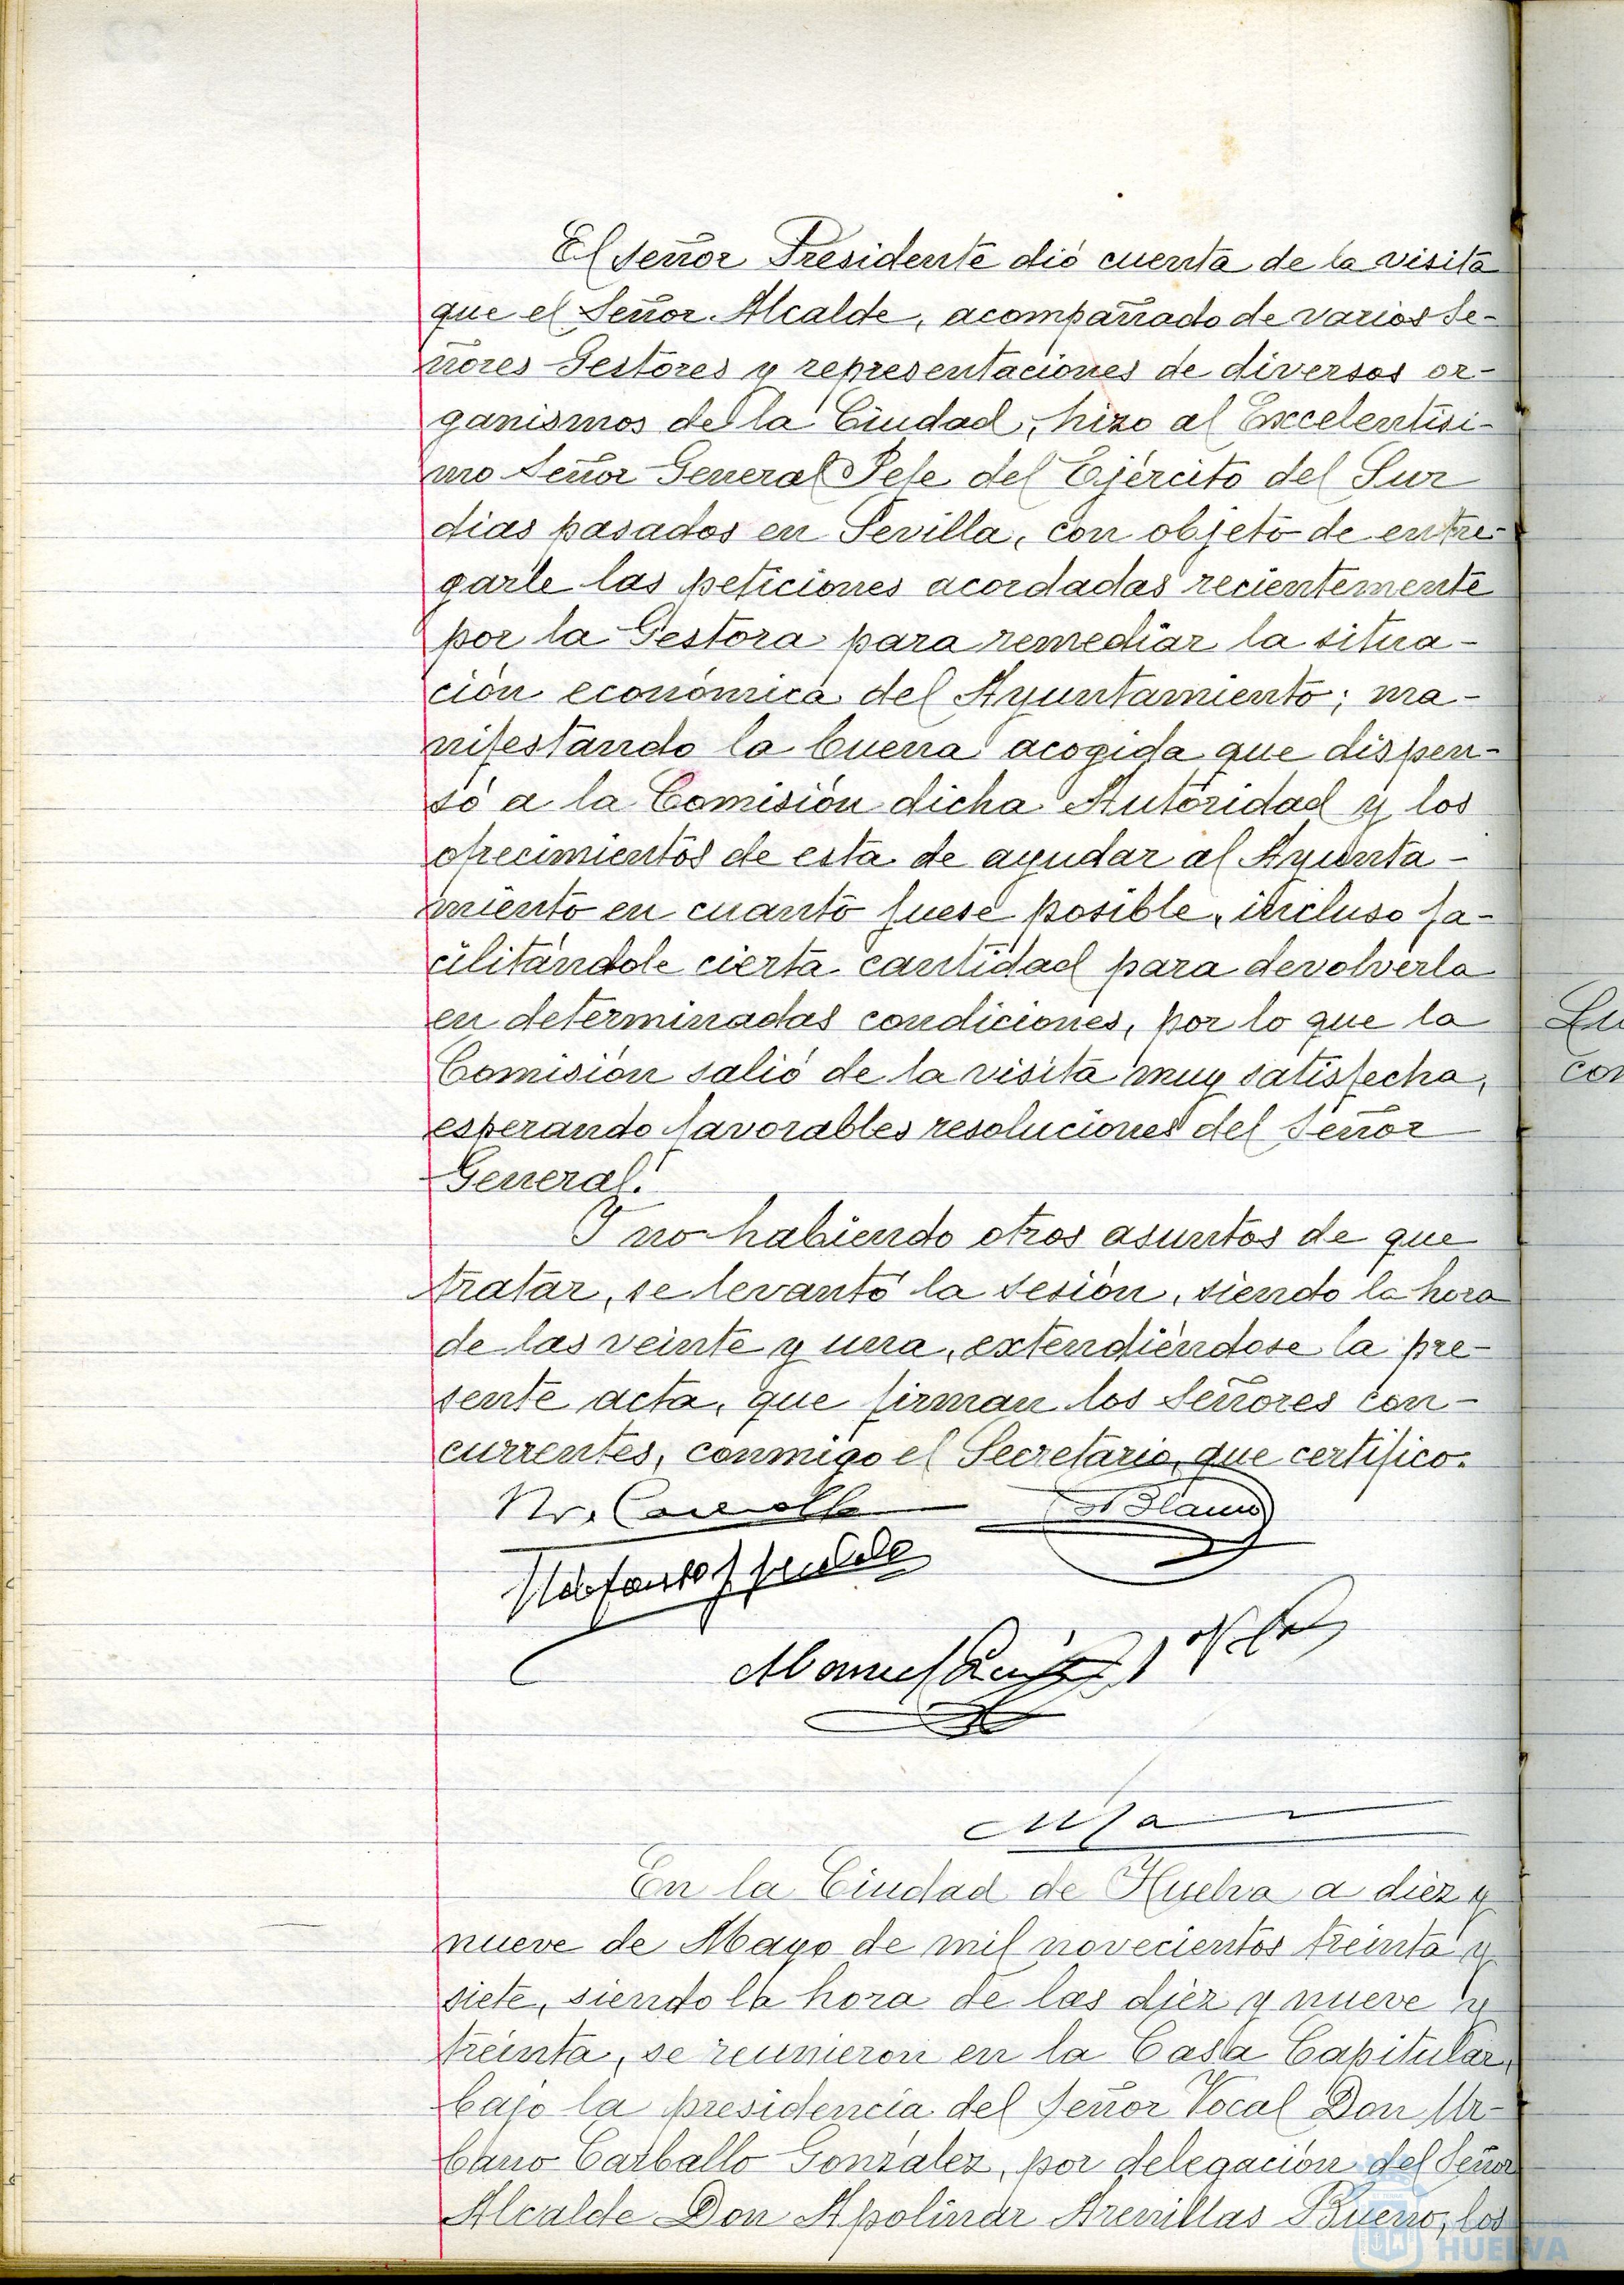 El Señor Presidente dió cuenta de la visita
que el Señor Alcalde, acompañado de varios Se-
ñores Gestores y representaciones de diversos or-
ganismos de la Ciudad, hizo al Excelentisi-
mo Señor General Jefe del Ejército del Sur
dias pasados en Sevilla, con objeto de entre-
garle las peticiones acordadas recientemente
por la Gestora para remediar la situa-
ción económica del Ayuntamiento; ma-
nifestando la buena acogida que dispen-
só a la Comisión dicha Autoridad y los
ofrecimientos de esta de ayudar al Ayunta-
miento en cuanto fuese posible, incluso fa-
cilitándole cierta cantidad para devolverla
en determinadas condiciones, por lo que la
Comisión salió de la visita muy satisfecha,
esperando favorables resoluciones del Señor
General.
Y no habiendo otros asuntos de que
tratar, se levantó la sesión, siendo la hora
de las veinte y una, extendiéndose la pre-
sente acta, que firman los Señores con-
currentes, conmigo el Secretario, que certifico.
Blanco
Manuel
En la Ciudad de Huelva a diez y
nueve de Mayo de mil novecientos treinta y
siete, siendo la hora de las diez y nueve y
treinta, se reunieron en la Casa Capitular,
bajo la presidencia del Señor Vocal Don Ur-
bano Carballo González, por delegación del Señor
Alcalde Don Apolinar Arenillas Bueno, los
HUELVA